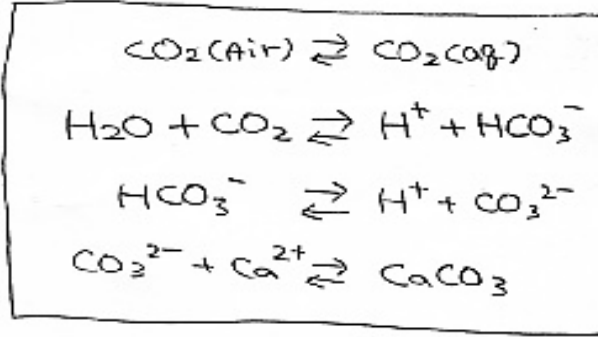 CO₂(Air) ⇄ CO₂(aq)
H₂O + CO₂ ⇄ H⁺ + HCO₃⁻
HCO₃⁻ ⇄ H⁺ + CO₃²⁻
CO₃²⁻ + Ca²⁺ ⇄ CaCO₃